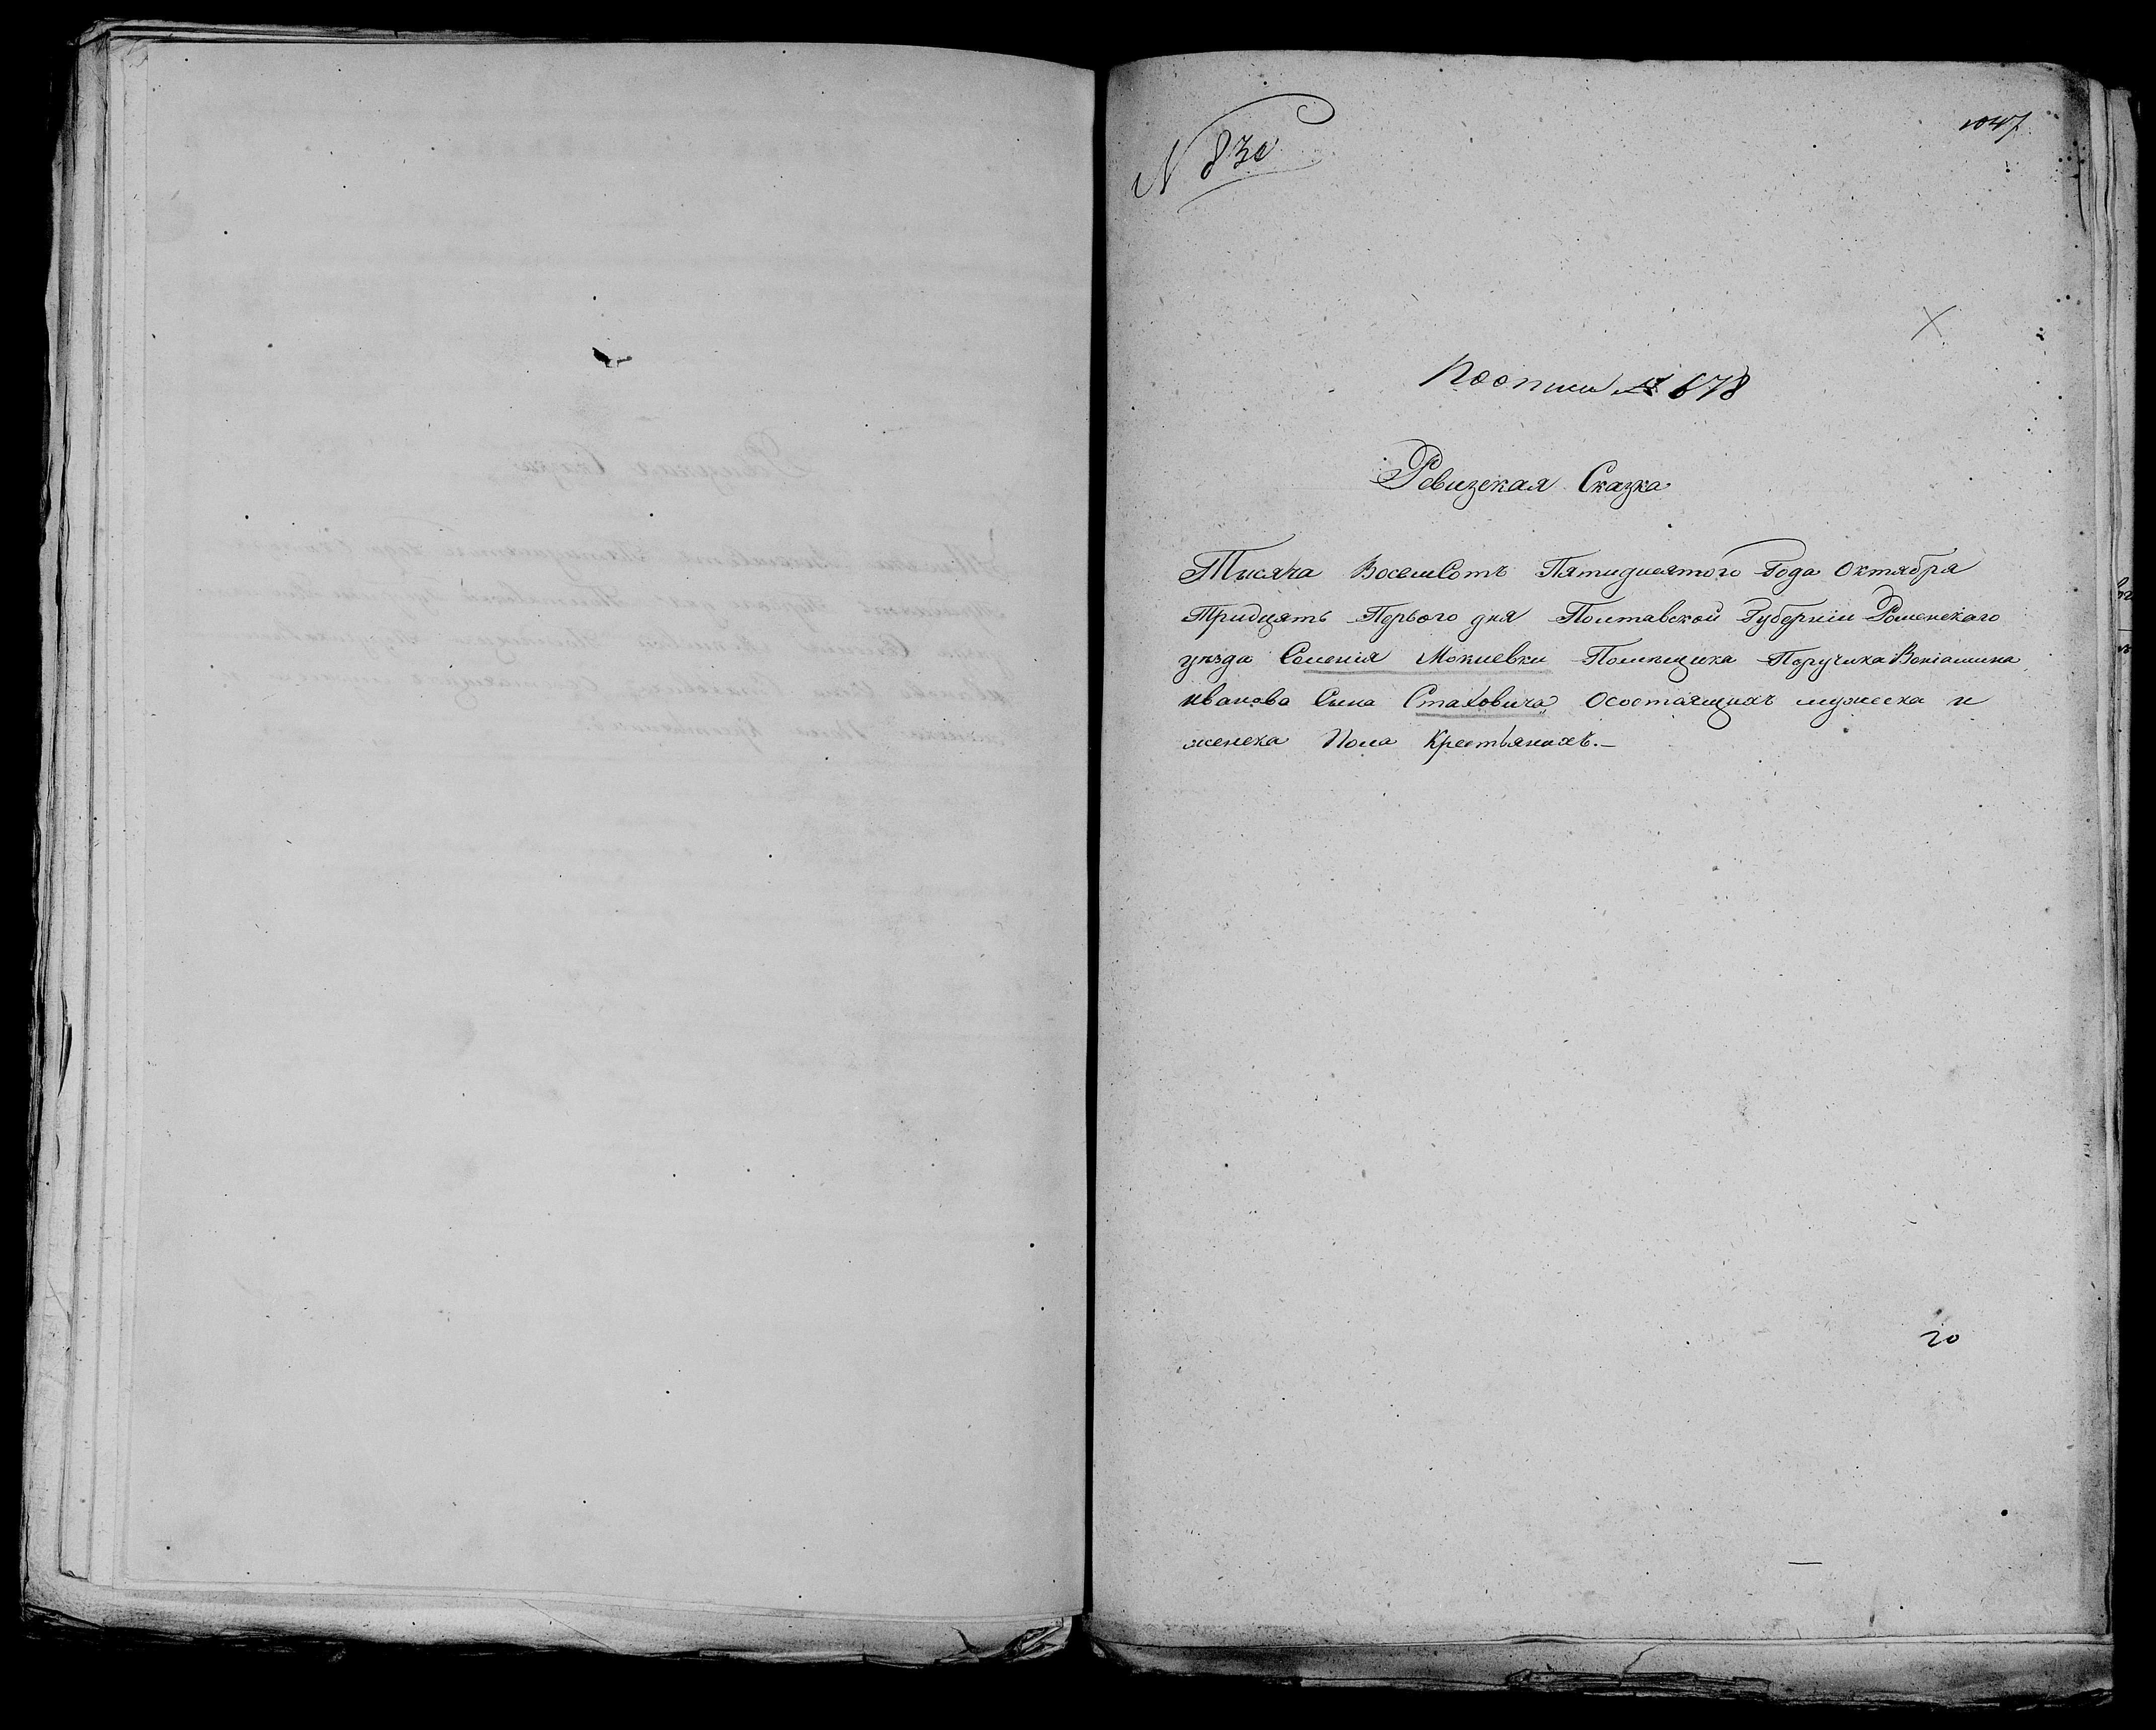 N 830
1047
По описи № 678
Ревизская Сказка
Тысяча Восемсотъ Пятидисятого Года Октября
Тридцять Первого дня Полтавской Губерніи Роменскаго
уѣзда Селенія Мокиевки Помѣщика Поручика Веніамина
иванова Сына Стаховича Осостаящихъ мужеска и
женска Пола Крестьянахъ.—
20